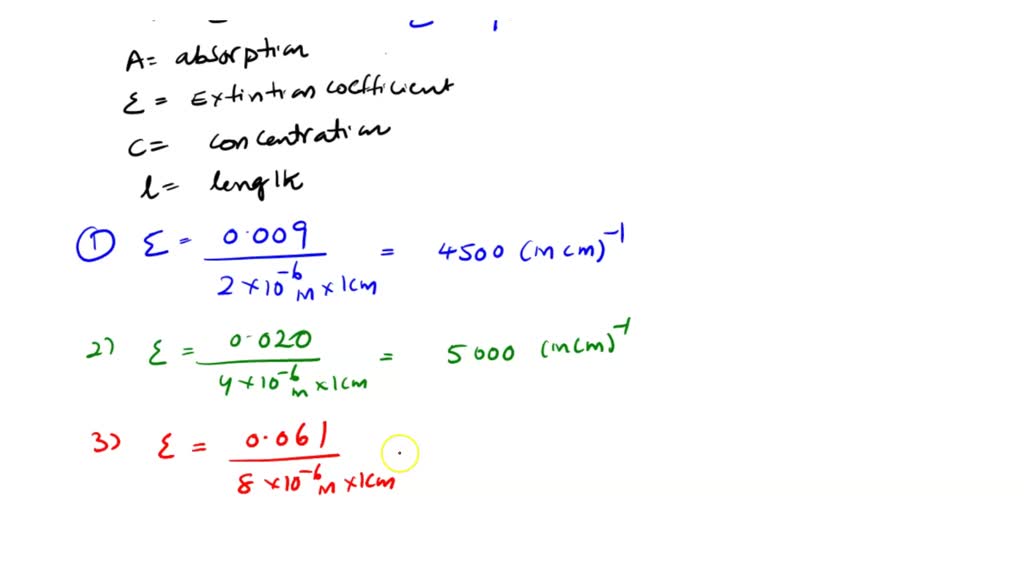 A= absorption
Ɛ = Extintian coefficient
C= concentration
l= length
① Ɛ = 0.009 / 2×10⁻⁶ M × 1cm = 4500 (M cm)⁻¹
2) Ɛ = 0.020 / 4×10⁻⁶ M × 1cm = 5000 (M cm)⁻¹
3) Ɛ = 0.061 / 8×10⁻⁶ M × 1cm